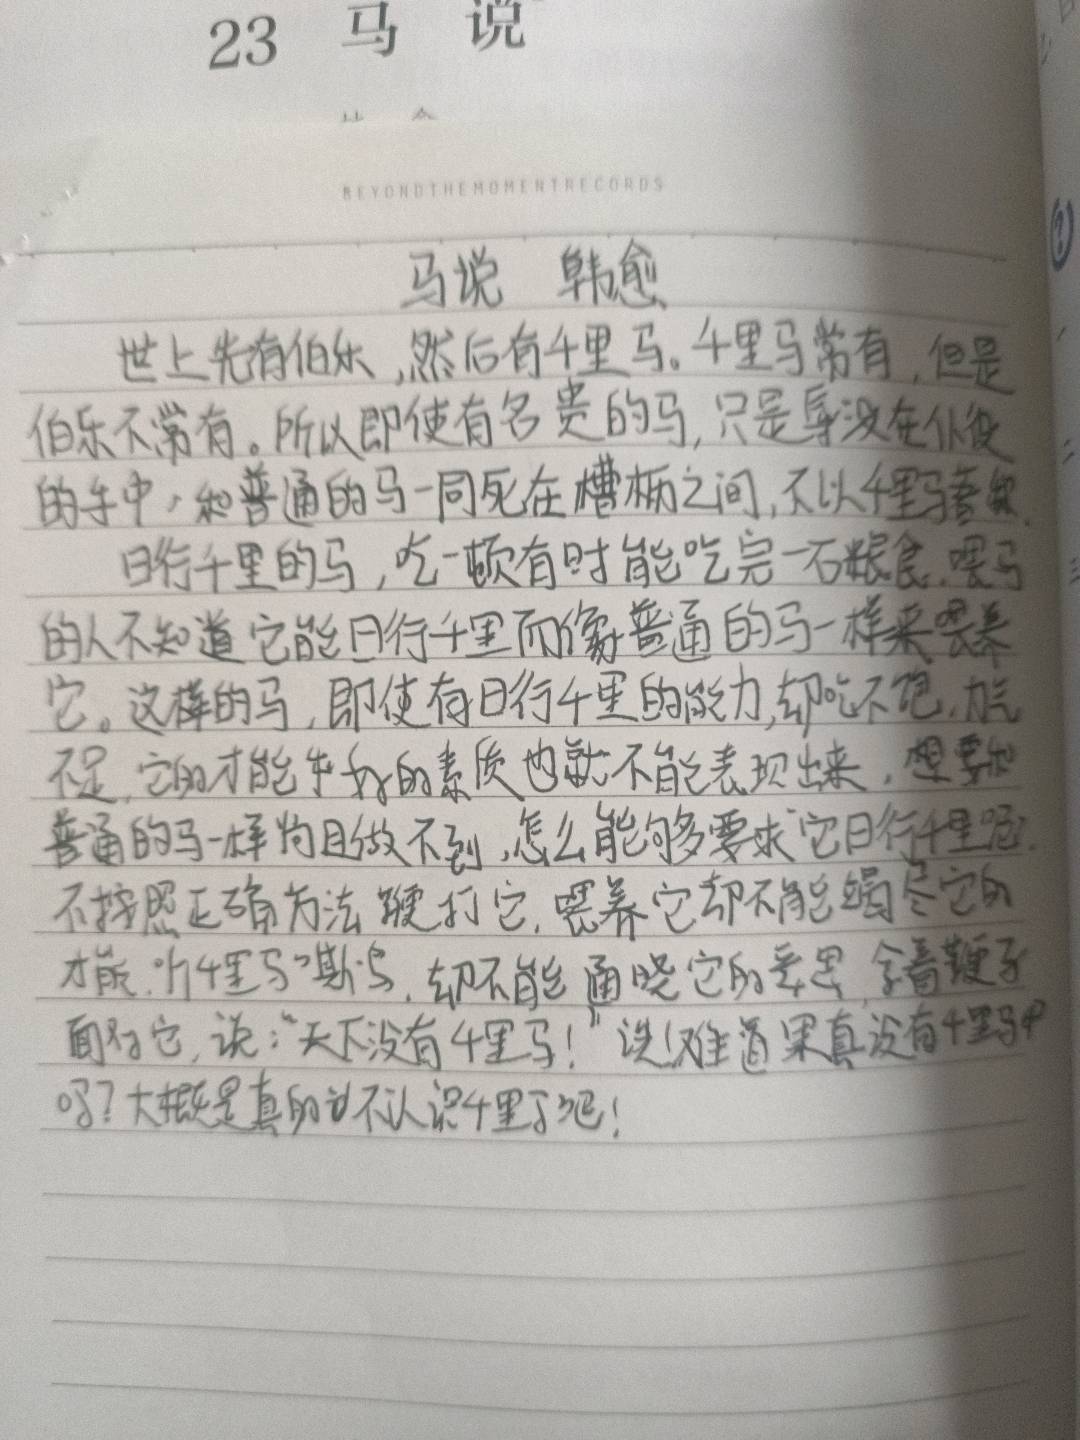 23 马 说
BEYONDTHEMOMENTRECORDS
马说 韩愈
世上先有伯乐,然后有千里马。千里马常有,但是
伯乐不常有。所以即使有名贵的马,只是辱没在仆役
的手中,和普通的马一同死在槽枥之间,不以千里马著称.
日行千里的马,吃一顿有时能吃完一石粮食.喂马
的人不知道它能日行千里而像普通的马一样来喂养
它。这样的马,即使有日行千里的能力,却吃不饱,力气
不足,它的才能 好的素质也就不能表现出来,想要和
普通的马一样尚且做不到,怎么能够要求它日行千里呢?
不按照正确方法鞭打它,喂养它却不能竭尽它的
才能.听千里马嘶鸣,却不能通晓它的意思,拿着鞭子
面对它,说:"天下没有千里马!"难道果真没有千里马
吗?大概是真的 不认识千里马吧!